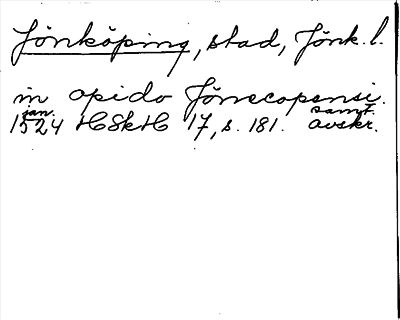 Jönköping, stad, Jönk. l.
in opido Jönecopensi.
jan. samt.
1524 HSkH 17, s. 181. avskr.